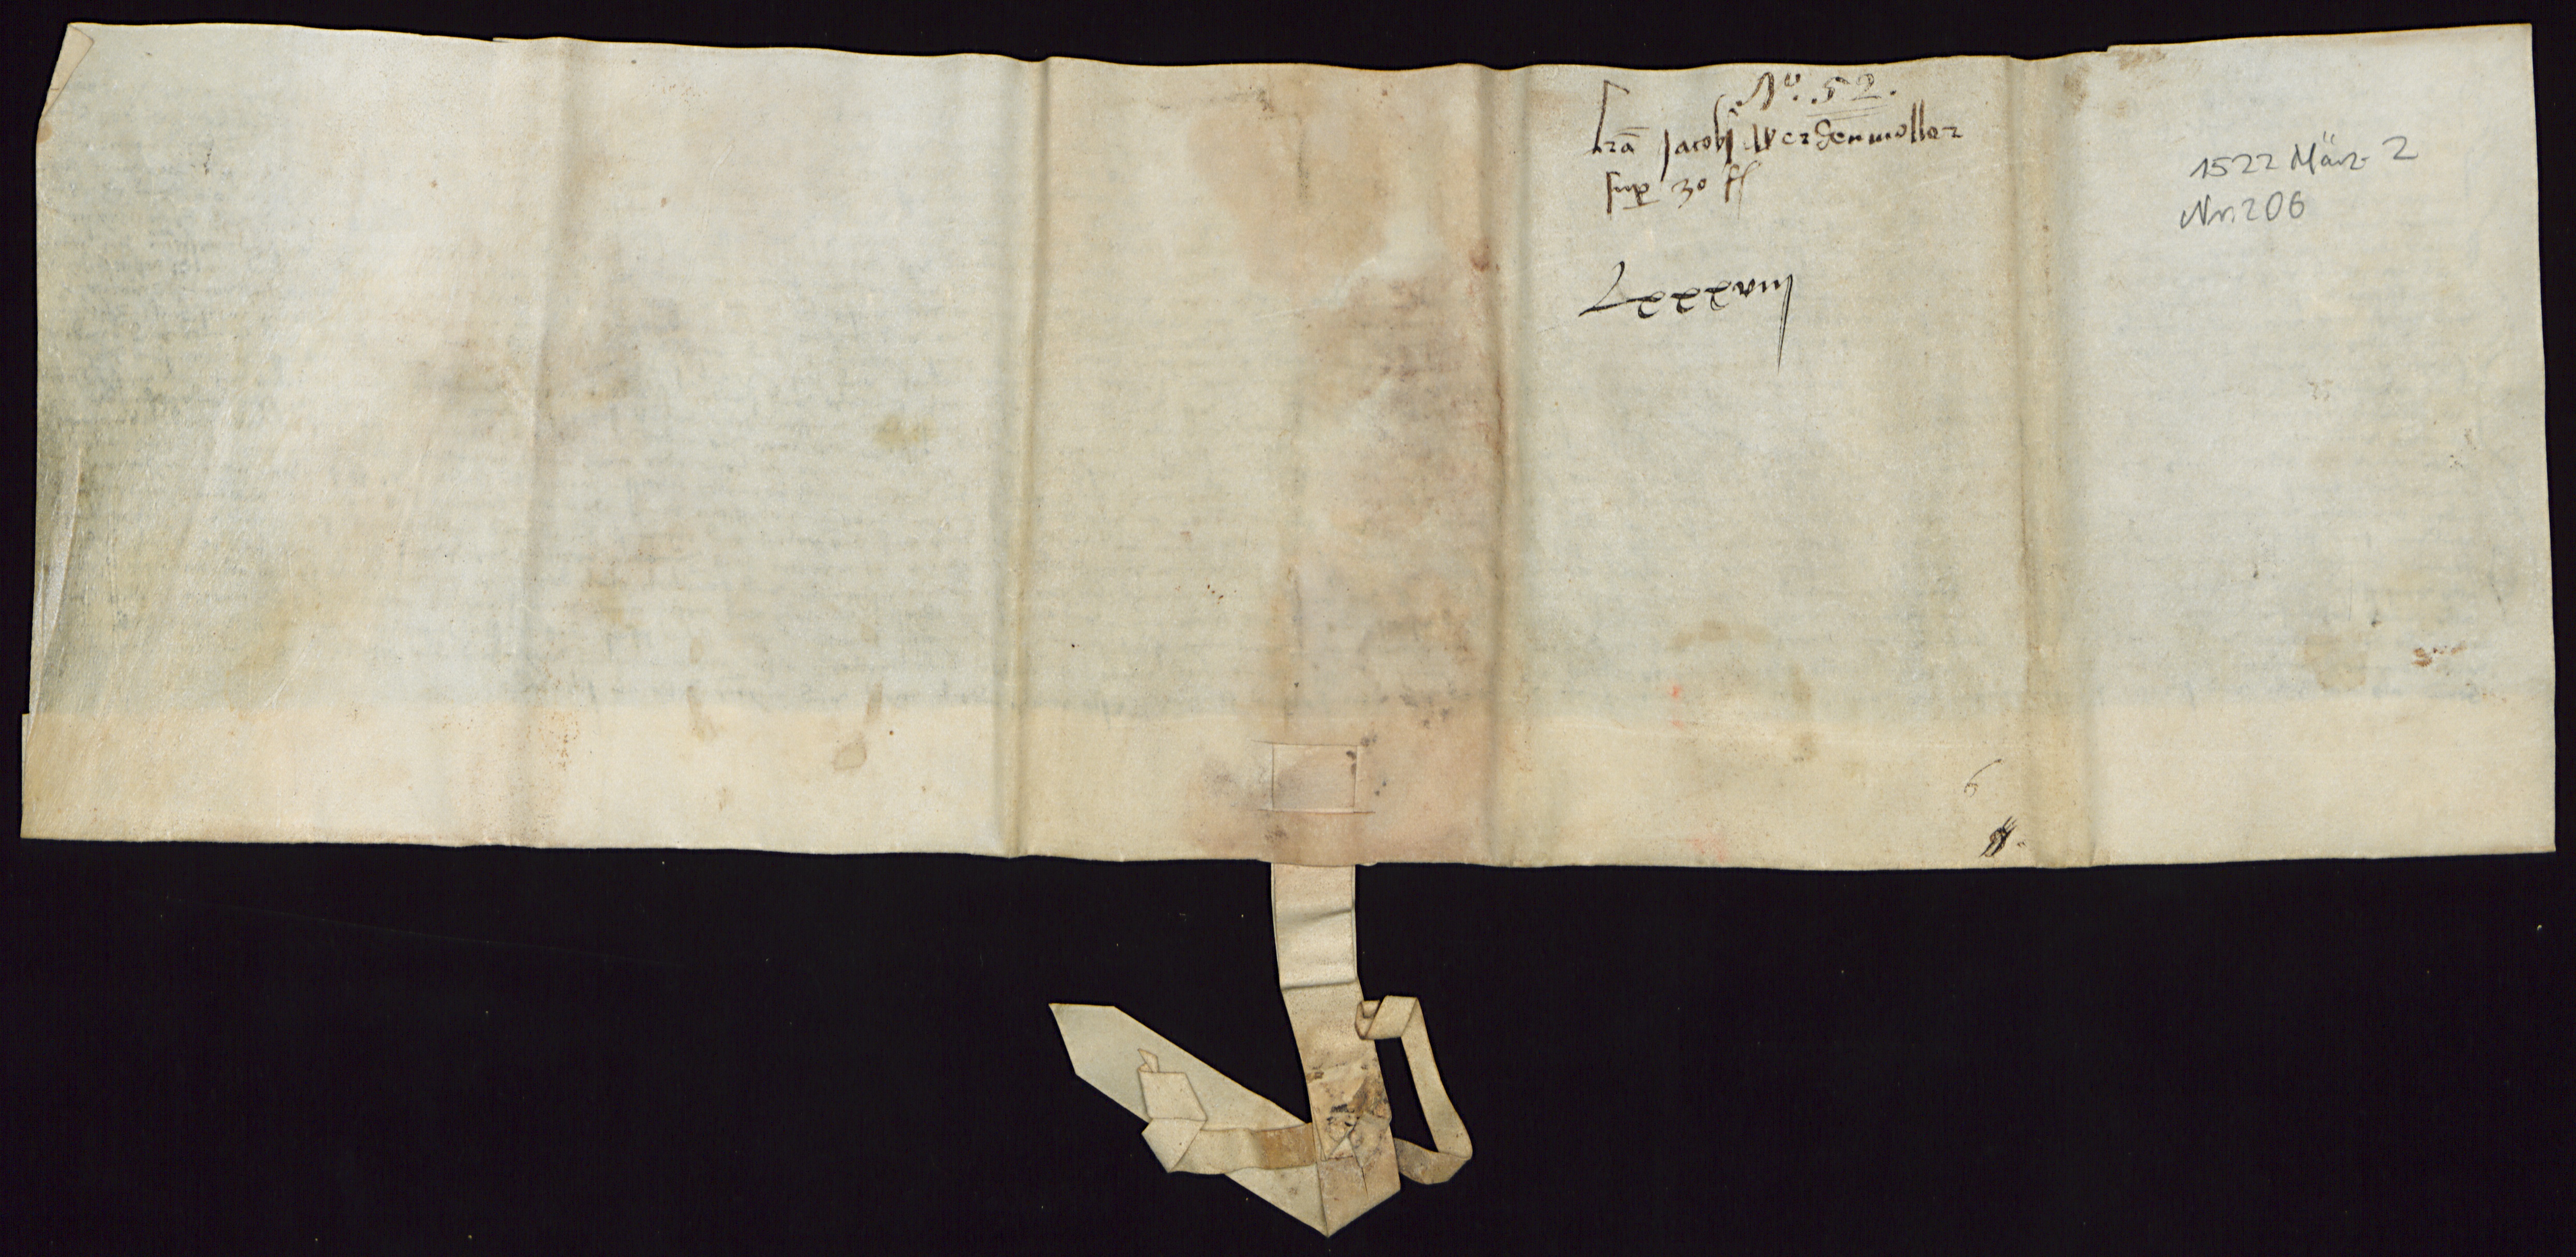 Nº. 52.
Lr̄a Jacobi Werdenmoller
sup 30 fl
Lxxxviij
1522 März 2
Nr. 206
6